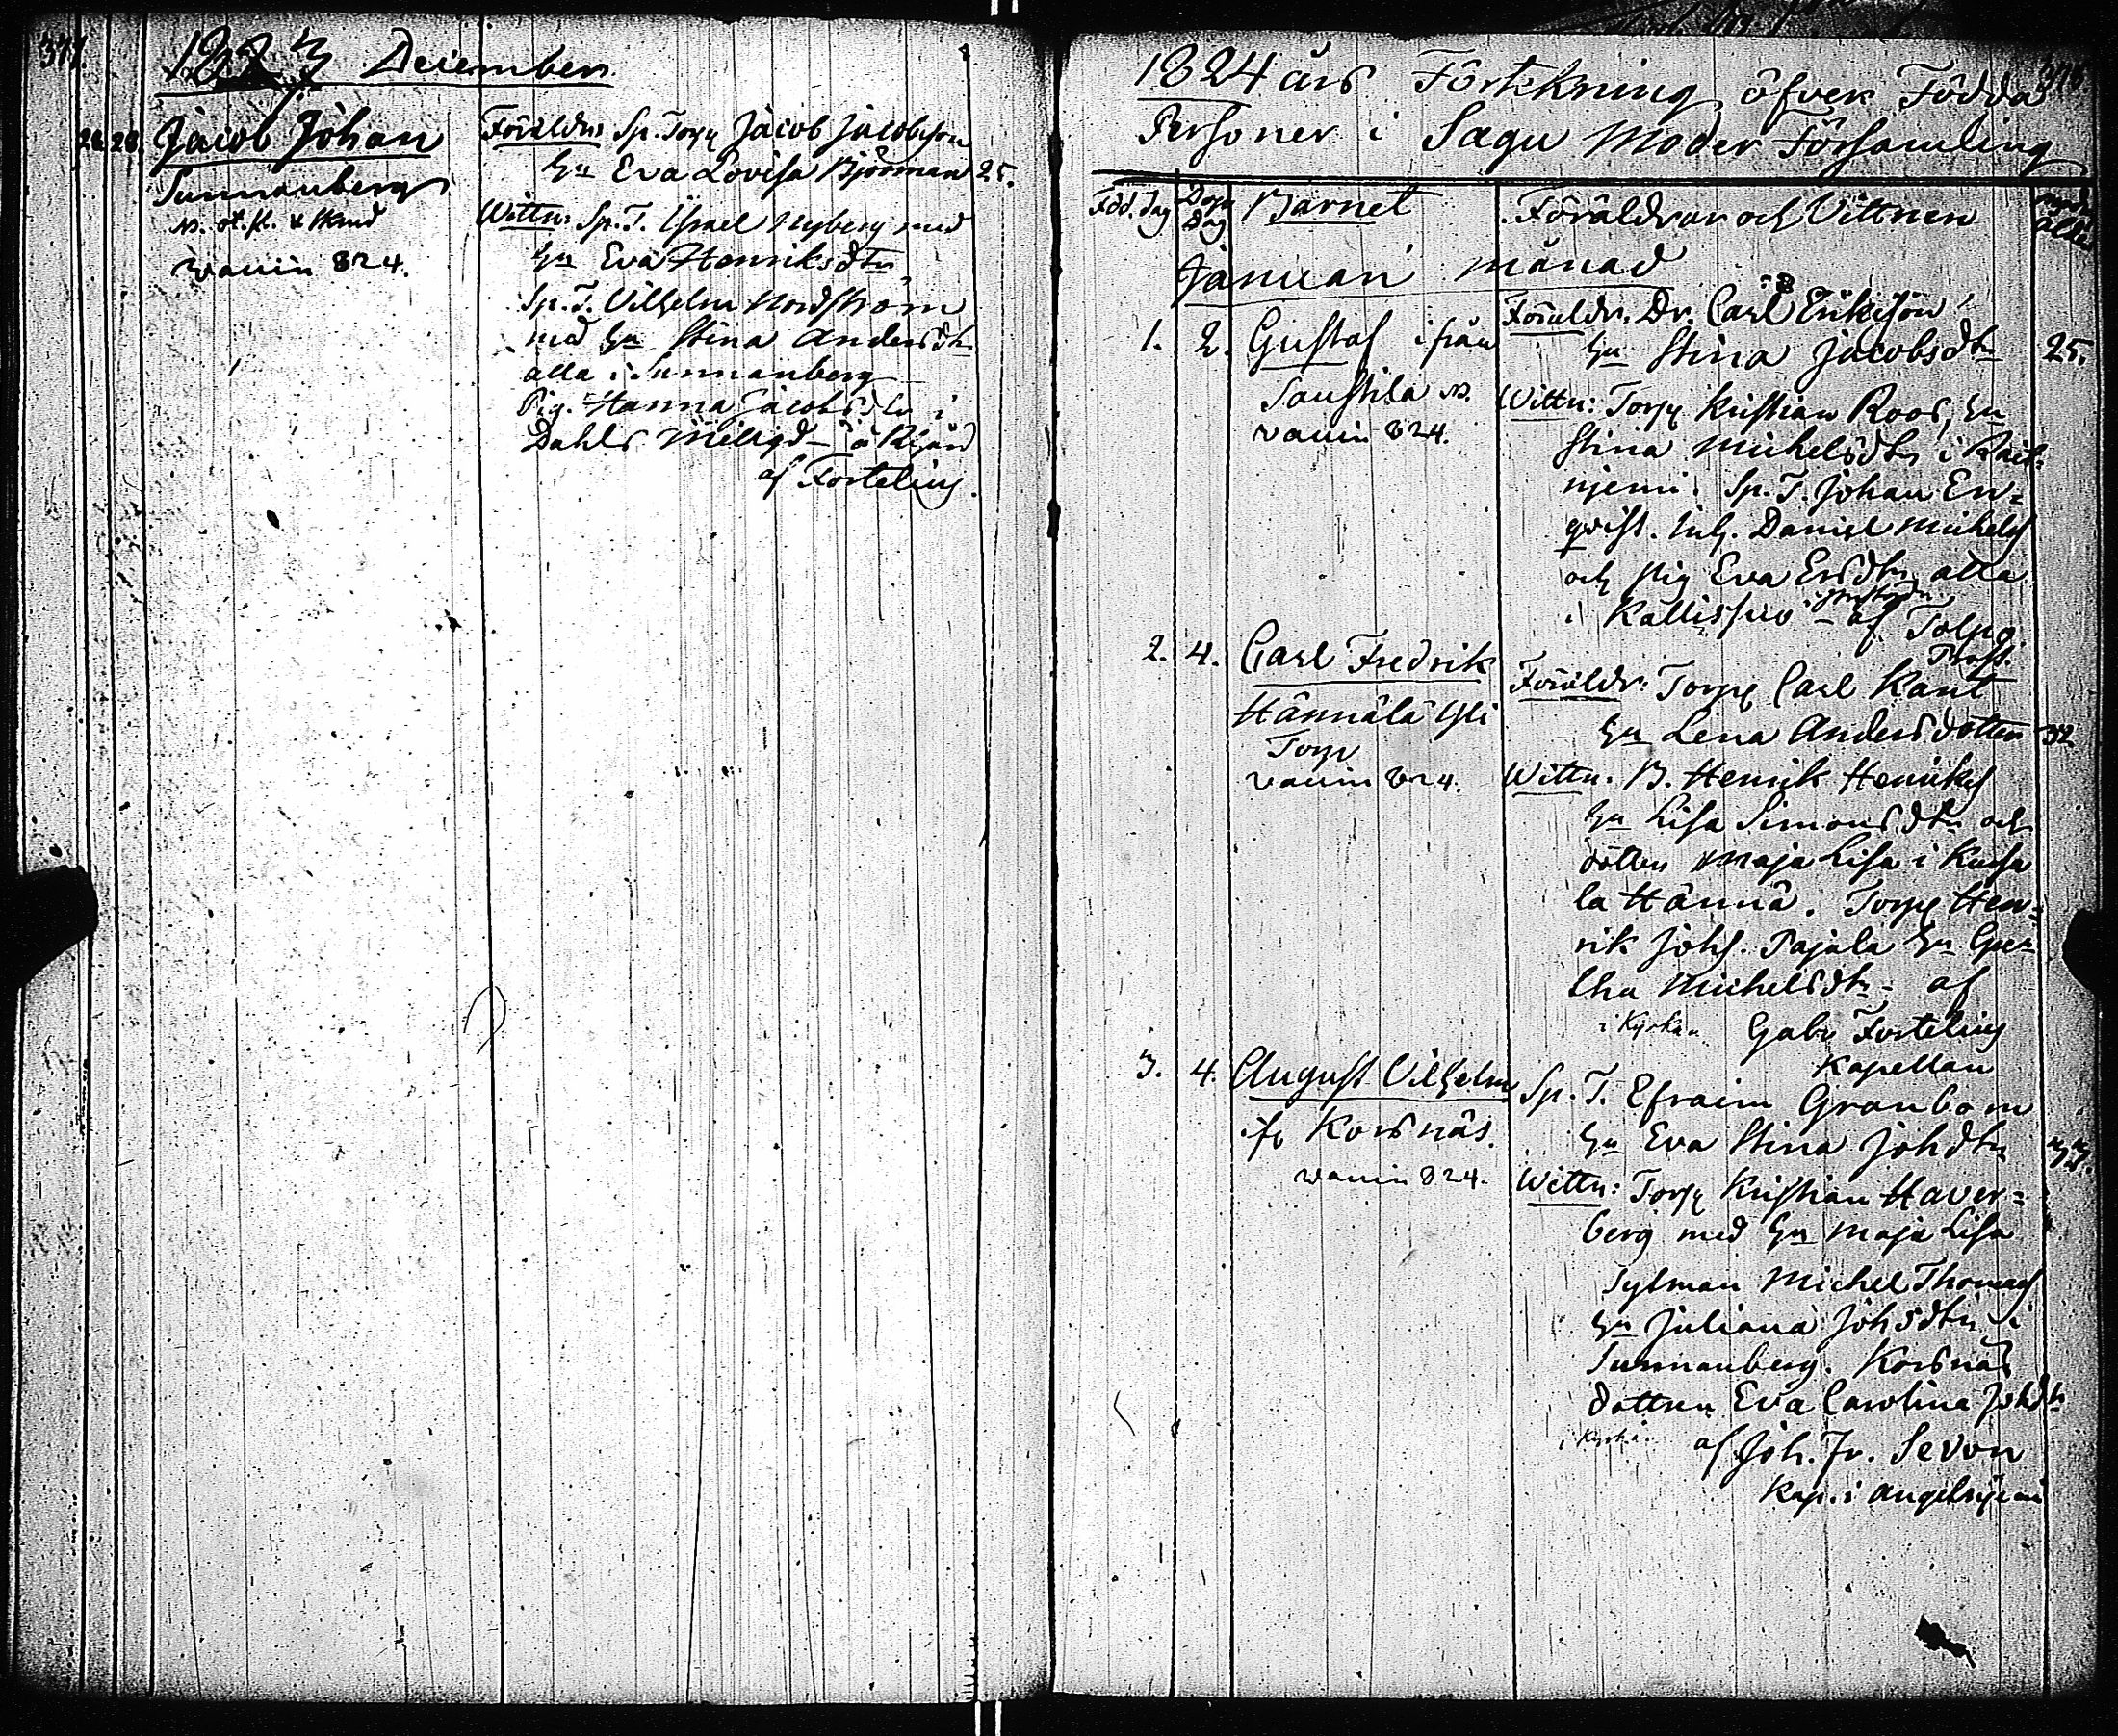 377.
1823 December
24. 28. Jacob Johan
Sunnanberg
vaccin 824.
Föräldrar Sp. Torp Jacob Jacobsson
Hu Eva Lovisa Björkman 25.
Wittn: Sp. T. Israel Nyberg med
Hu Eva Henriksdtr
Sp. T. Vilhelm Nordström
med Hu Stina Andersdtr
alla i Sunnanberg
Pig. Hanna Jacobsdtr i
Dahls
af Fortelius.
1824 års Förtekning öfver Födda
Personer i Sagu Moder Församling
Föd. Dag Döpe Dag Barnet Föräldrar och Vittnen
Januari månad
1. 2. Gustaf ifrån
Saustila
vaccin 824.
Föräldr. Dr. Carl Eriksson
Hu Stina Jacobsdtr 25.
Wittn: Torp Kristian Roos, Hu
Stina Michelsdtr i
Sp. T. Johan En=
qvist. Inh. Daniel Michels
och Pig Eva Ersdtr alla
i Kallis af Tolpo
Prost.
2. 4. Carl Fredrik
Hännälä Yli
Torp
vaccin 824.
Föräldr: Torp Carl Kant
Hu Lena Andersdotter 32
Wittn. B. Henrik Henriks
Hu Lisa Simonsdtr och
dotter Maja Lisa i
la Hännä. Torp Hen=
rik Johs. Pajala Hu Ger=
tha Michelsdtr af
i Kyrkan Gabr Fortelius
Kapellan
3. 4. August Vilhelm
ifr Korsnäs.
vaccin 824.
Sp. T. Efraim Granbom
Hu Eva Stina Johdtr 33.
Wittn: Torp Kristian Haver=
berg med Hu Maja Lisa
Sytman Michel Thomas
Hu Juliana Johsdtr i
Sunnanberg. Korsnäs
dottren Eva Carolina Johdtr
i Kyrkan af Joh. Fr. Sevon
Kap. i Angelniemi